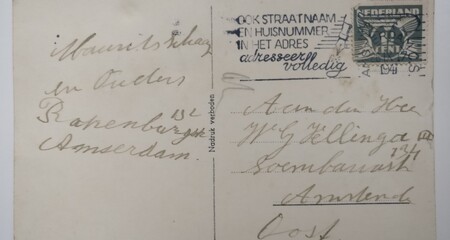 Maurits
en Ouders
Rapenburgst 132
Amsterdam.
Nadruk verboden
OOK STRAATNAAM
EN HUISNUMMER
IN HET ADRES
adresseer
volledig
NEDERLAND
CENT
Aan den Heer
W G Hellinga
Soembawastr
134 III
Amsterdam
Oost